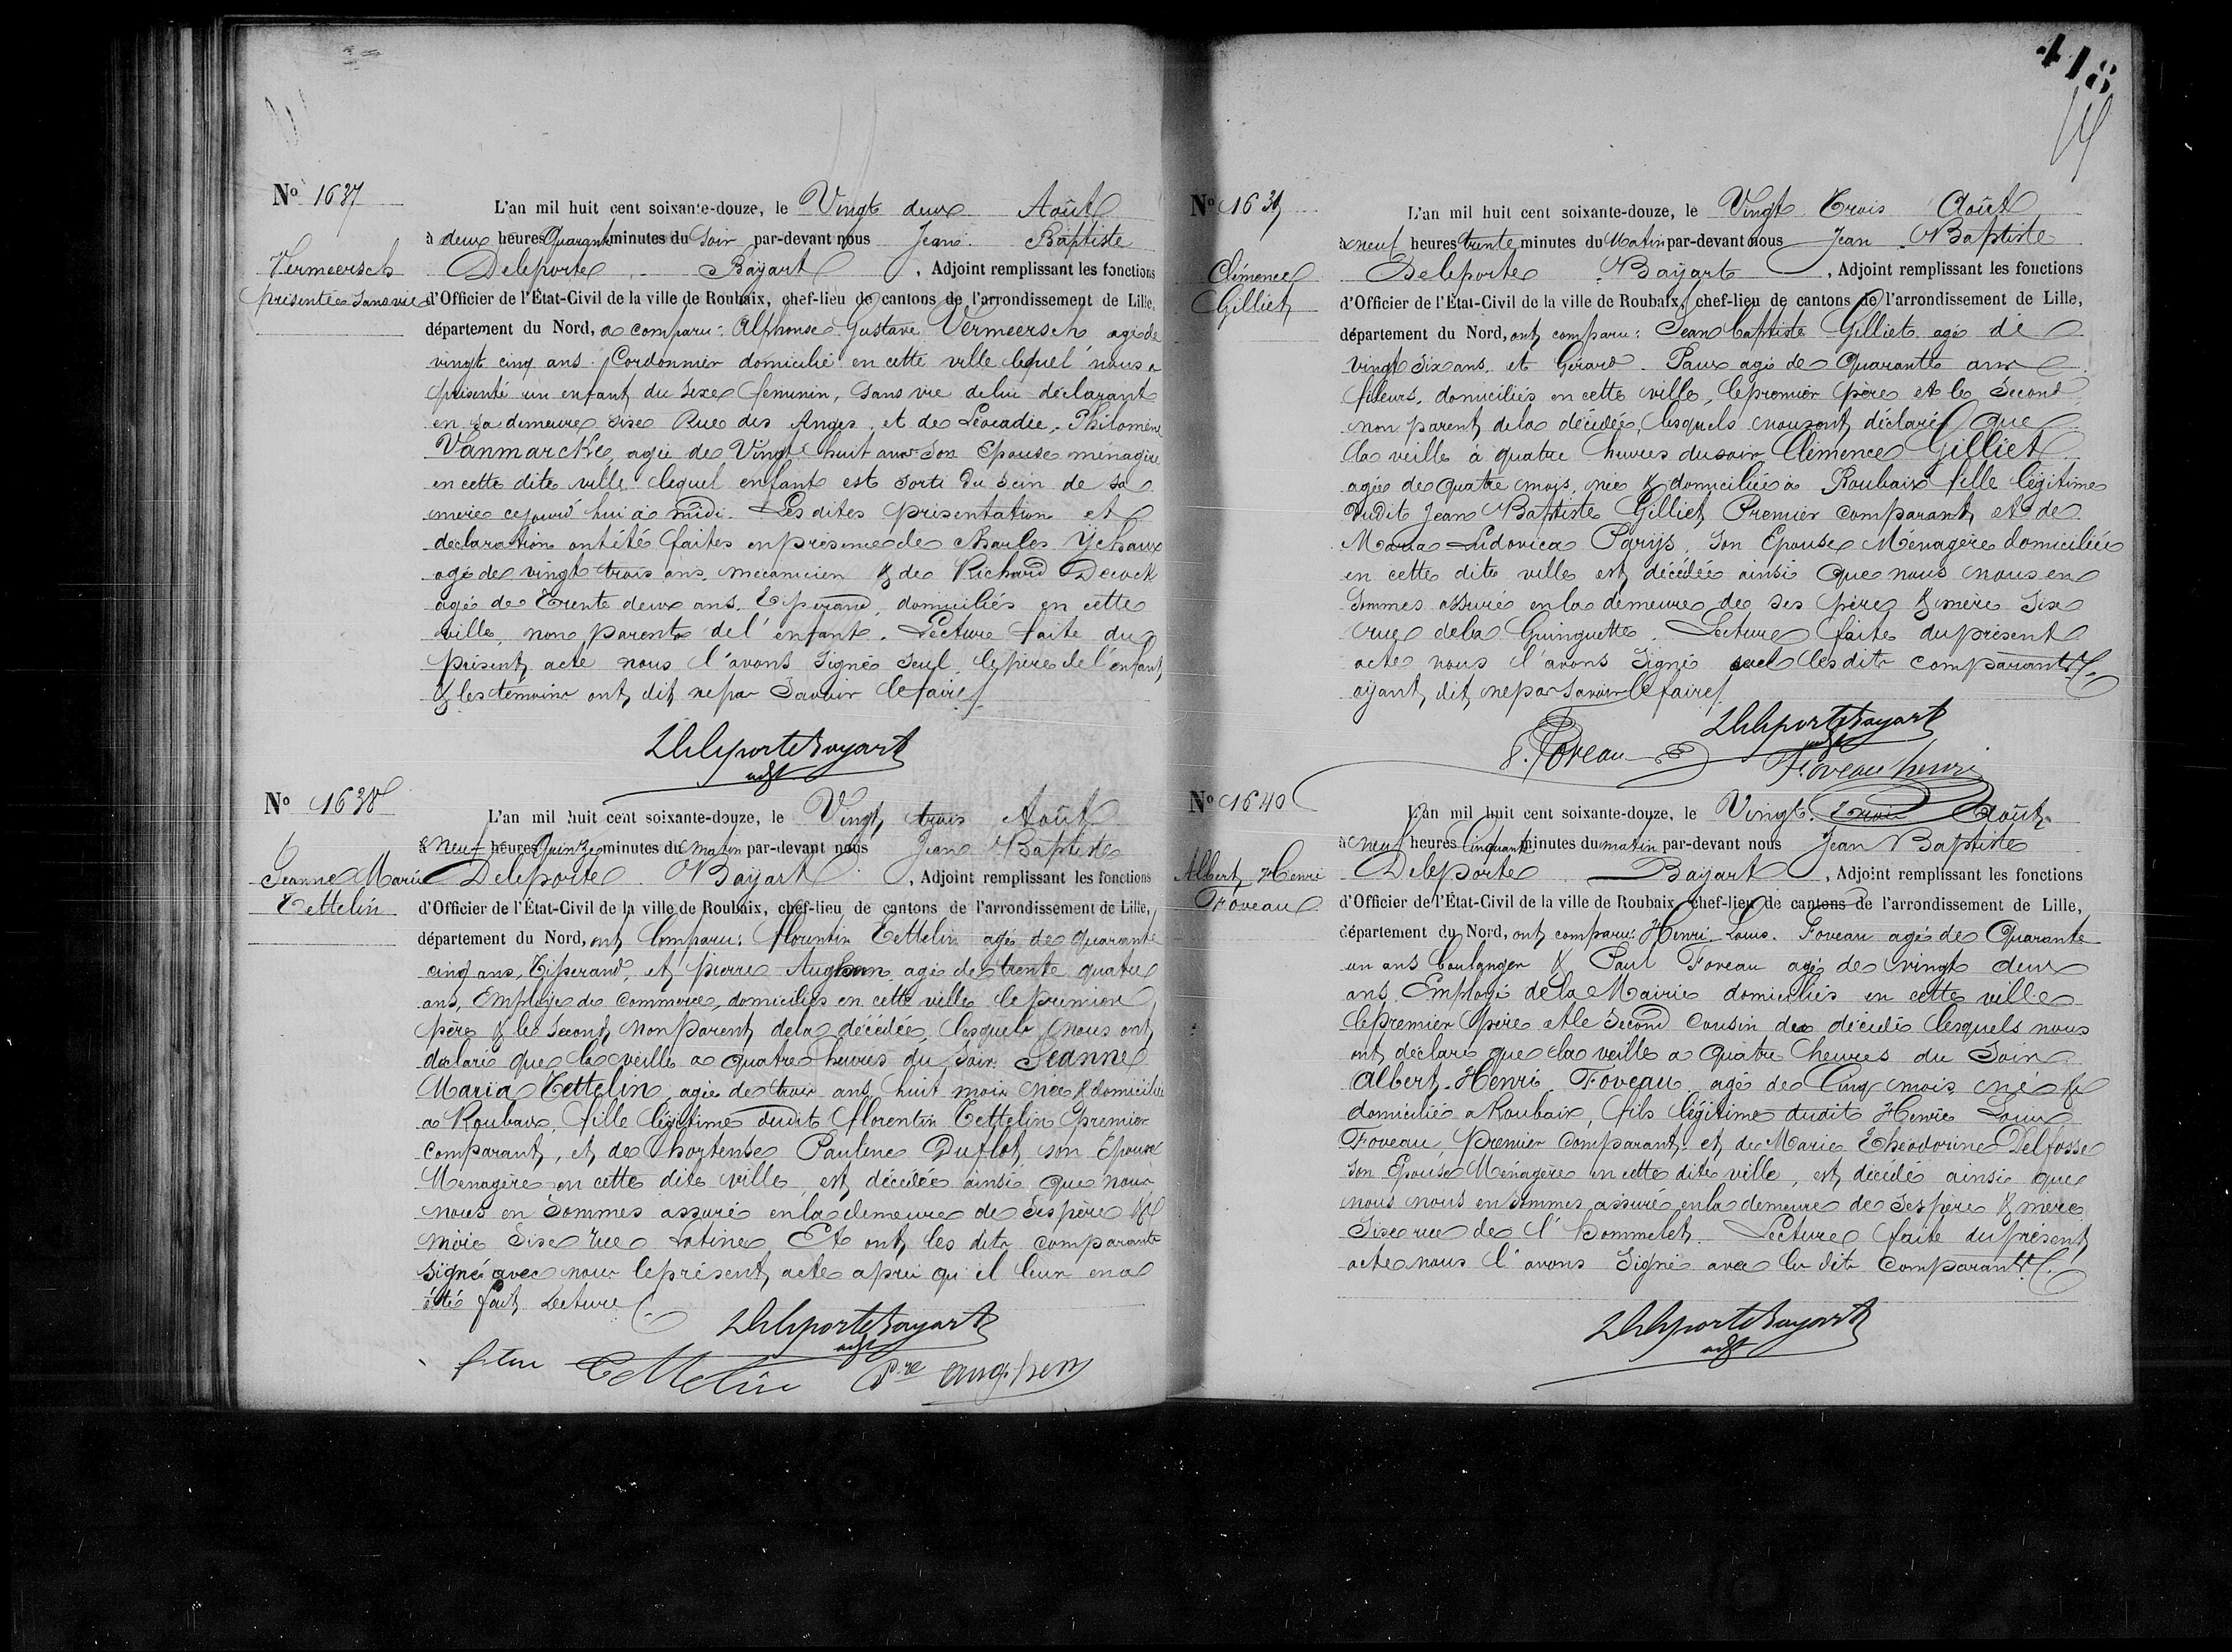 418
N° 1637
Vermeersch
présentée sans vie
L'an mil huit cent soixante-douze, le Vingt deux Août
à deux heures Quarante minutes du Soir par-devant nous Jean Baptiste
Deleporte Bayart, Adjoint remplissant les fonctions
d'Officier de l'État-Civil de la ville de Roubaix, chef-lieu de cantons de l'arrondissement de Lille,
département du Nord, a comparu: Alphonse Gustave Vermeersch agé de
vingt cinq ans Cordonnier domicilié en cette ville lequel nous a
présenté un enfant du sexe feminin, sans vie de lui déclarant
en sa demeure sise Rue des Anges, et de Léocadie, Philomène
Vanmarcke, agée de Vingt huit ans Son Epouse ménagère
en cette dite ville lequel enfant est sorti du sein de sa
mère cejourd'hui à midi. Les dites présentation et
déclaration ont été faites en présence de Charles Ychaux
agé de vingt trois ans, mécanicien & de Richard Decock
agé de Trente deux ans, Tisserand, domiciliés en cette
ville, non parents de l'enfant. Lecture faite du
présent acte nous l'avons Signé Seul, le père de l'enfant
& les témoins ont dit ne pas Savoir le faire
JBDeleporte Bayart
adjt
N° 1638
Jeanne Maria
Tettelin
L'an mil huit cent soixante-douze, le Vingt trois Août
à Neuf heures Quinze minutes du Matin par-devant nous Jean Baptiste
Deleporte Bayart, Adjoint remplissant les fonctions
d'Officier de l'État-Civil de la ville de Roubaix, chef-lieu de cantons de l'arrondissement de Lille,
département du Nord, ont Comparu: florentin Tettelin agé de quarante
cinq ans, Tisserand, et pierre Anghem agé de trente quatre
ans, Employé de Commerce, domiciliés en cette ville le premier
père & le Second non parent de la décédée, lesquels nous ont
déclaré que la veille a quatre heures du Soir Jeanne
Maria Tettelin, agée de trois ans huit mois née & domiciliée
a Roubaix, fille légitime dudit florentin Tettelin premier
comparant, et de hortense Pauline Duflot, son Epouse
Menagère en cette dite ville, est décédée ainsi que nous
nous en Sommes assuré en la demeure de Ses père &
mère Sise rue Latine Et ont les dits comparants
signé avec nous le présent acte après qu'il leur en a
été fait Lecture
JBDeleporte Bayart
adjt
Tettelin Pre anghem
N° 1639
Clémence
Gilliet
L'an mil huit cent soixante-douze, le Vingt Trois Août
à neuf heures trente minutes du Matin par-devant nous Jean Baptiste
Deleporte Bayart, Adjoint remplissant les fonctions
d'Officier de l'État-Civil de la ville de Roubaix, chef-lieu de cantons de l'arrondissement de Lille,
département du Nord, ont comparu: Jean baptiste Gilliet agé de
vingt Six ans, et Gérard Paux agé de Quarante ans
fileurs, domiciliés en cette ville, le premier père et le Second
non parent de la décédée, lesquels nous ont déclaré que
la veille à quatre heures du soir Clémence Gilliet
agée de quatre mois, née & domiciliée à Roubaix fille légitime
dudit Jean Baptiste Gilliet Premier comparant, et de
Maria Ludovica Parijs, Son Epouse Menagère domiciliée
en cette dite ville est décédée ainsi que nous nous en
Sommes assuré en la demeure de ses père & mère Sise
rue de la Guinguette. Lecture faite du présent
acte nous l'avons Signé seul les dits comparants
ayant dit ne pas savoir le faire
JBDeleporte Bayart
adjt
P. Foveau Foveau henri
N° 1640
Albert Henri
Foveau
L'an mil huit cent soixante-douze, le Vingt Trois Août
à neuf heures Cinquante minutes du matin par-devant nous Jean Baptiste
Deleporte Bayart, Adjoint remplissant les fonctions
d'Officier de l'État-Civil de la ville de Roubaix, chef-lieu de cantons de l'arrondissement de Lille,
département du Nord, ont comparu: Henri Louis Foveau agé de Quarante
un ans boulanger & Paul Foveau agé de vingt deux
ans Employé de la Mairie domiciliés en cette ville
le premier père et le Second Cousin du décédé lesquels nous
ont déclaré que la veille a Quatre heures du Soir
Albert Henri Foveau agé de Cinq mois né &
domicilié a Roubaix, fils légitime dudit Henri Louis
Foveau, premier Comparant et de Marie Théodorine Delfosse
Son Epouse Ménagère en cette dite ville, est décédé ainsi que
nous nous en Sommes assuré en la demeure de Ses père & mère
Sise rue de l'hommelet. Lecture faite du présent
acte nous l'avons Signé avec les dits Comparants
JBDeleporte Bayart
adjt